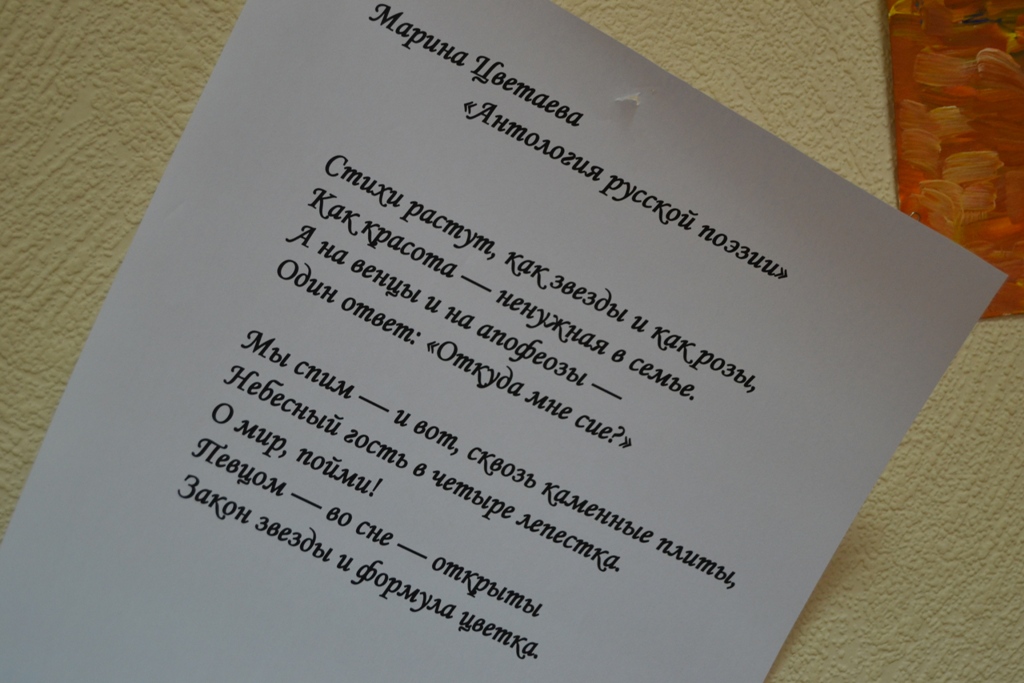 Марина Цветаева
«Антология русской поэзии»
Стихи растут, как звезды и как розы,
Как красота — ненужная в семье.
А на венцы и на апофеозы —
Один ответ: «Откуда мне сие?»
Мы спим — и вот, сквозь каменные плиты,
Небесный гость в четыре лепестка.
О мир, пойми!
Певцом — во сне — открыты
Закон звезды и формула цветка.